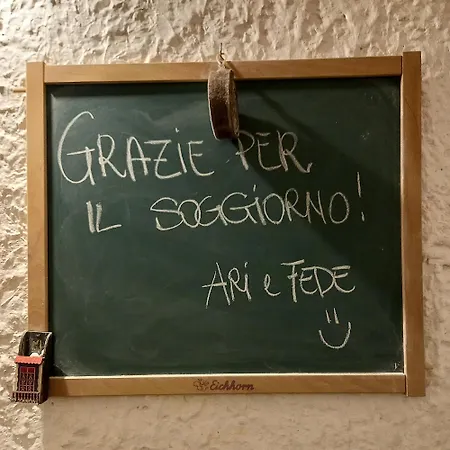 GRAZIE PER
IL SOGGIORNO!
ARI e FEDE
Eichhorn